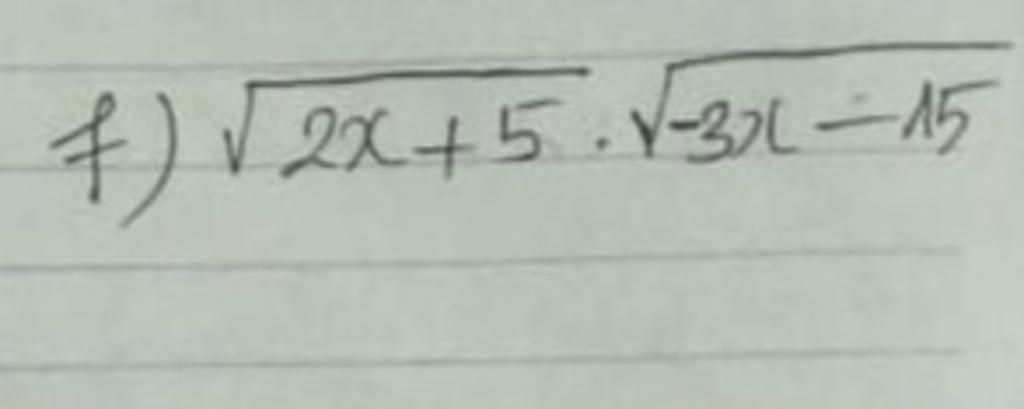 f) √(2x+5) . √(-3x-15)